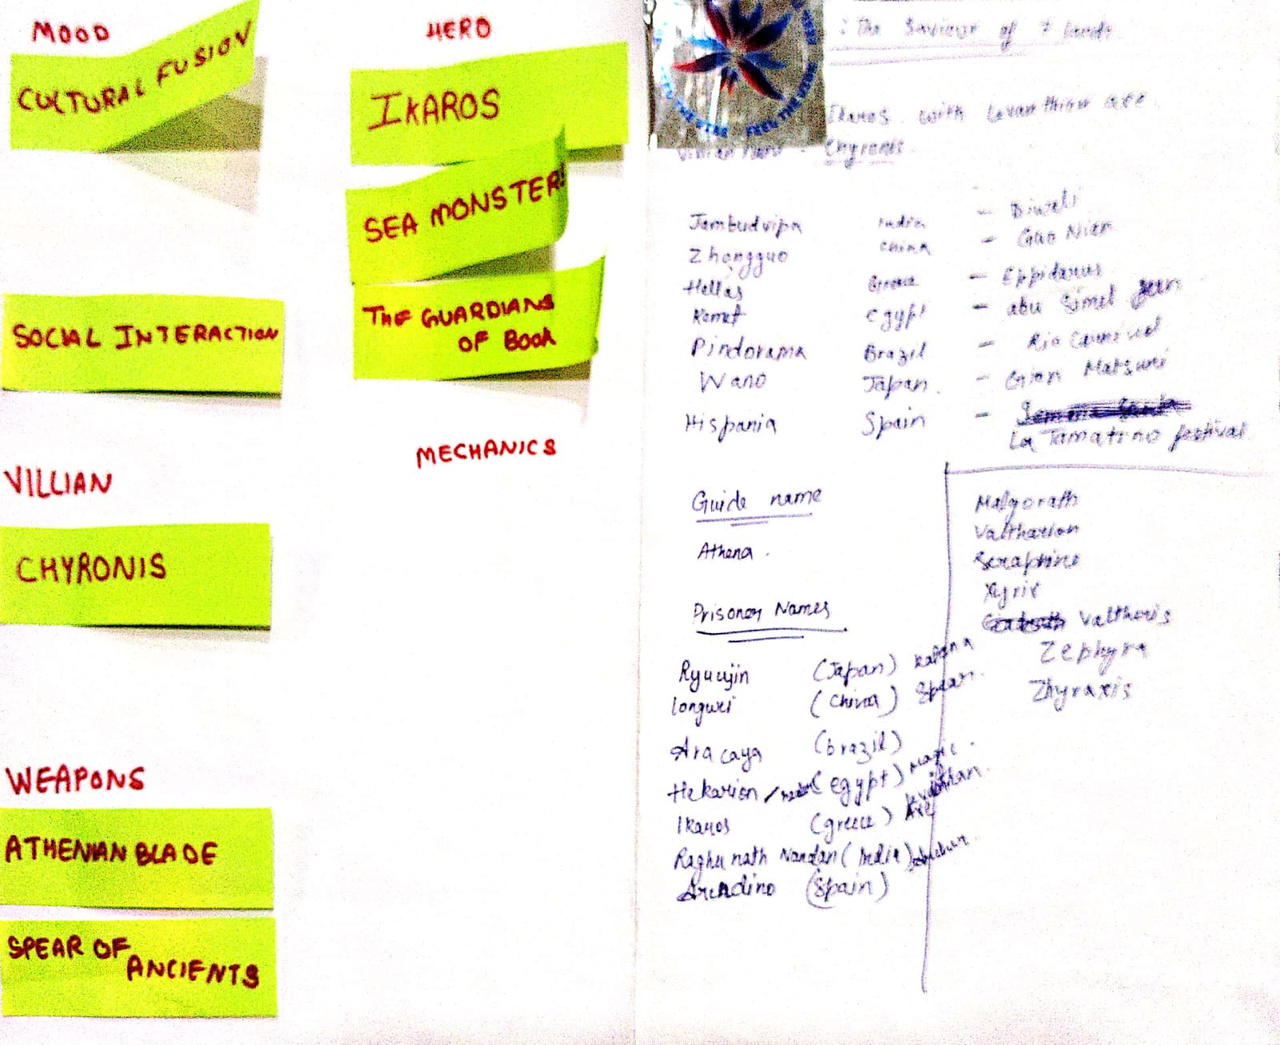 MOOD
CULTURAL FUSION
SOCIAL INTERACTION
VILLIAN
CHYRONIS
WEAPONS
ATHENIAN BLADE
SPEAR OF
ANCIENTS
HERO
IKAROS
SEA MONSTER!
THE GUARDIANS
OF BOOK
MECHANICS
: The Saviour of 7 lands
Ikaros with Levanthion axe
Villian name - Chyronis
Jambudvipa India - Diwali
Zhongguo China - Guo Nien
Hellas Greece - Eppidarus
Kemet Egypt - abu Simel
Pindorama Brazil - Rio Carnival
Wano Japan. - Gion Matsuri
Hispania Spain -
La Tamatino festival
Guide name
Athena.
Prisoner Names
Ryuujin (Japan) katana
Longwei (China) Spear.
Aracaya (brazil)
Hekarion / (egypt) Magic.
Ikaros (greece) Axe
Raghu nath Nandan (India)
(Spain)
Malgorath
Valtharion
Seraphine
Xyrix
Valthoris
Zephyra
Zhyraxis